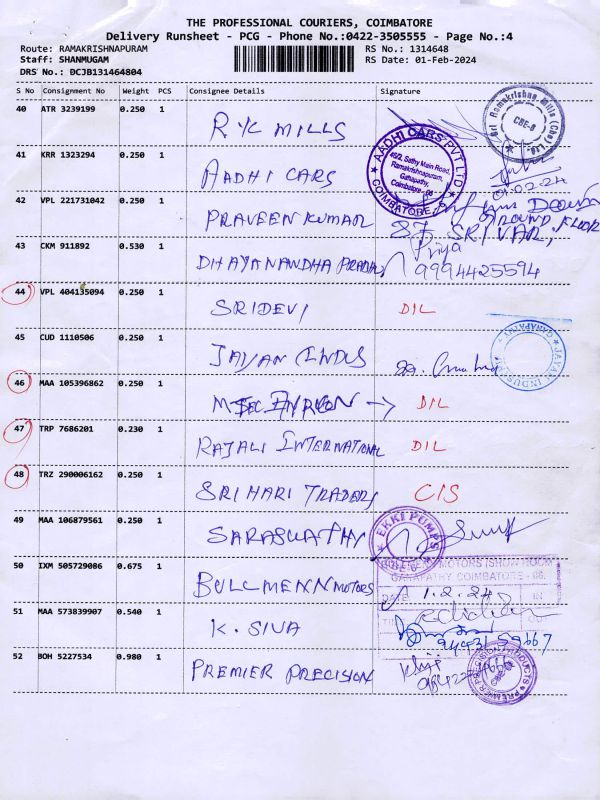 THE PROFESSIONAL COURIERS, COIMBATORE
Delivery Runsheet - PCG - Phone No.:0422-3505555 - Page No.:4
Route: RAMAKRISHNAPURAM RS No.: 1314648
Staff: SHANMUGAM RS Date: 01-Feb-2024
DRS No.: DCJB131464804
S No Consignment No Weight PCS Consignee Details Signature
40 ATR 3239199 0.250 1 RYC MILLS
Sri Ramakrishna Mills (Cbe) Ltd.
CBE-6
01.02.24
41 KRR 1323294 0.250 1 AADHI CARS
AADHI CARS PVT LTD
49/2, Sathy Main Road,
Ramakrishnapuram,
Ganapathy,
Coimbatore - 06
COIMBATORE
42 VPL 221731042 0.250 1 PRAVEEN KUMAR
Ground Floor
SF, SRIVAR,
43 CKM 911892 0.530 1 DHAYANANDHA
Priya
9994425594
44 VPL 404135094 0.250 1 SRIDEVI D/L
45 CUD 1110506 0.250 1 JAYAN INDUS
JAYAN INDUS
GANAPATHY
46 MAA 105396862 0.250 1 D/L
47 TRP 7686201 0.230 1 RAJALI INTERNATIONAL D/L
48 TRZ 290006162 0.250 1 SRI HARI TRADERS C/S
49 MAA 106879561 0.250 1 SARASWATHY
EKKI PUMPS
50 IXM 505729086 0.675 1 BULLMENN MOTORS
MOTORS (SHOW ROOM
GANAPATHY COIMBATORE - 06.
DATE 1.2.24 IN
51 MAA 573839907 0.540 1 K. SIVA
52 BOH 5227534 0.980 1 PREMIER PRECISION
PREMIER PRECISION PRODUCTS